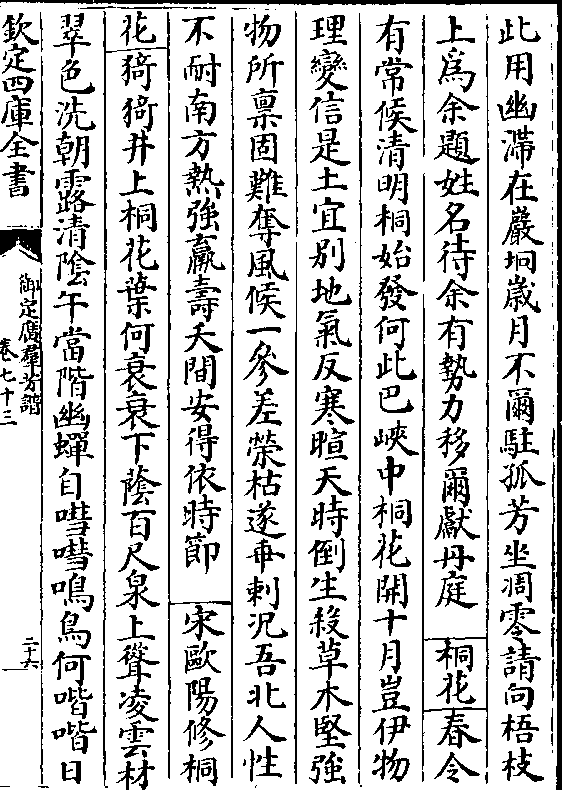 此用幽滞在巖坰嵗月不爾駐孤芳坐凋零請向梧枝
上爲余題姓名待余有勢力移爾獻丹庭 桐花春令
有常候清明桐始發何此巴峽中桐花開十月豈伊物
理變信是土宜别地氣反寒暄天時倒生殺草木堅强
物所禀固難奪風候一參差榮枯遂乖刺况吾北人性
不耐南方熱强羸壽夭間安得依時節 宋歐陽修桐
花猗猗井上桐花葉何衰衰下蔭百尺泉上聳凌雲材
翠色洗朝露清陰午當階幽蟬自嘒嘒鳴鳥何喈喈日
欽定四庫全書
御定廣羣芳譜
卷七十三
二十六